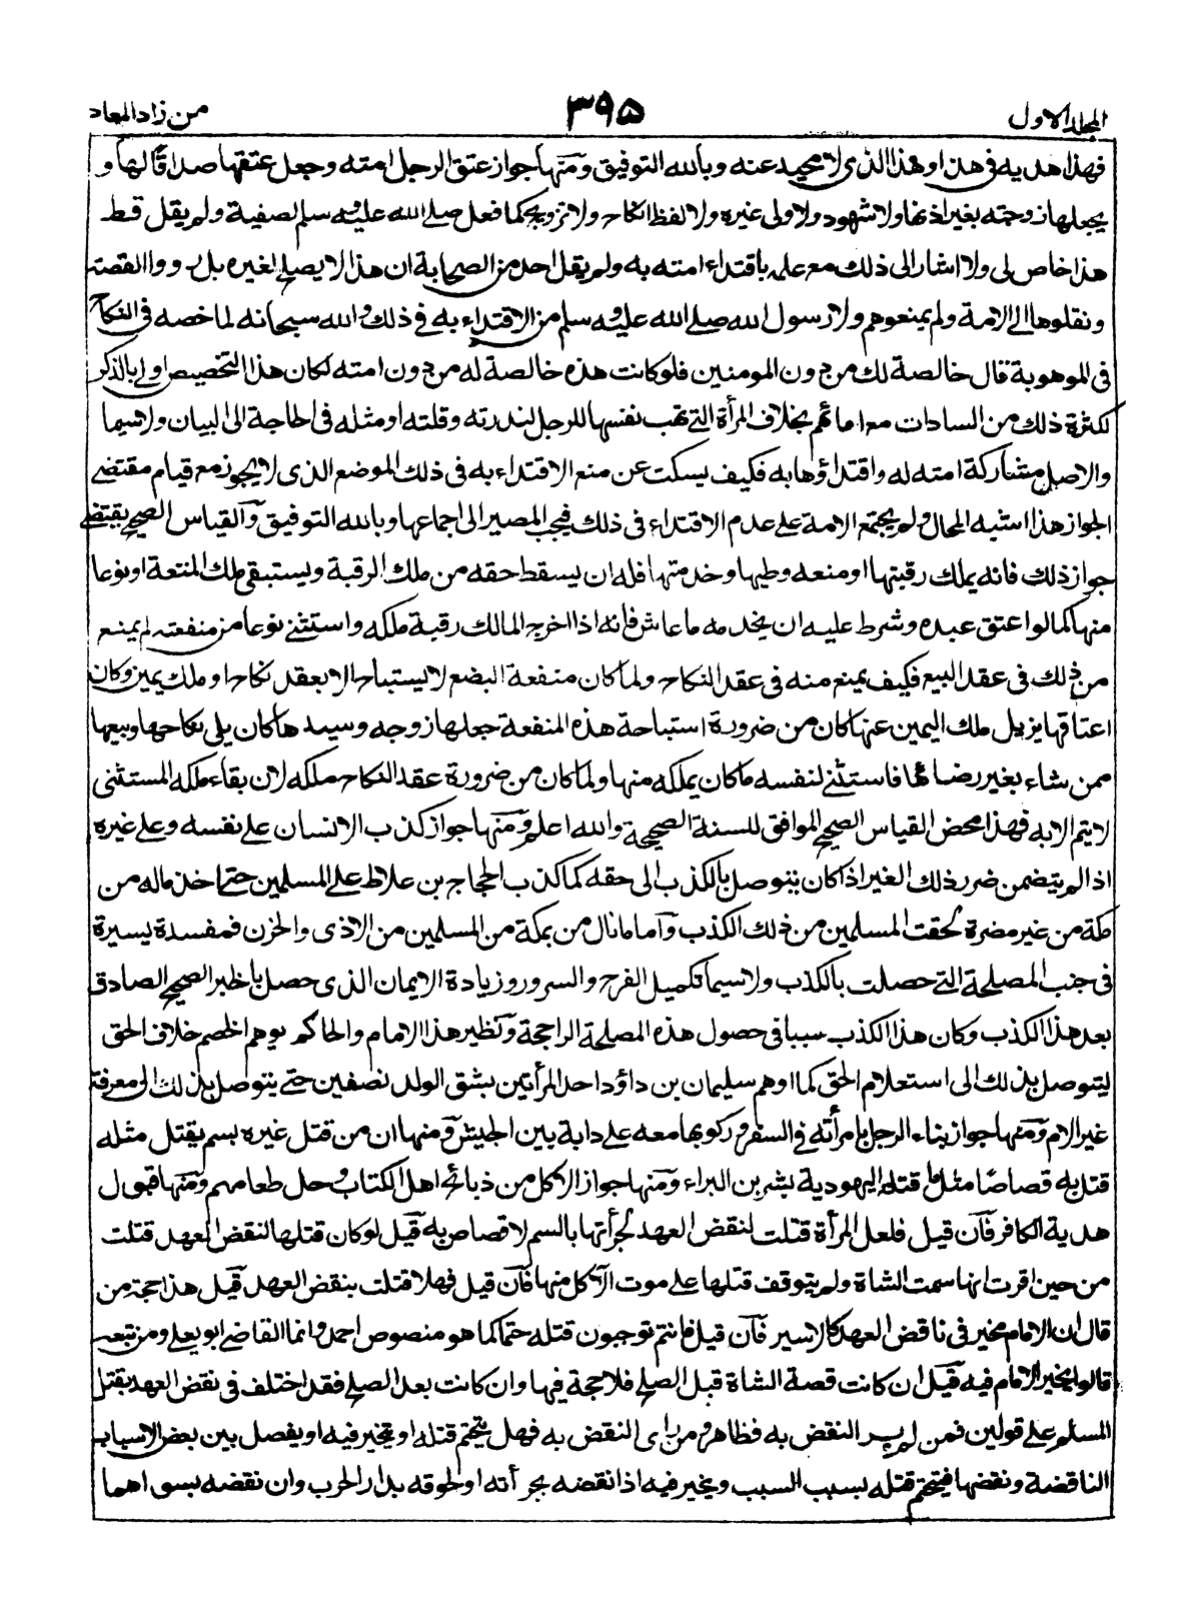 المجلد الاول ۳۹۵ من زاد المعاد
فهذا هديه في هذا وهذا الذى لا محيد عنه وبالله التوفيق ومنها جواز عتق الرجل امته وجعل عتقها صداقا لها و
يجعلها زوجته بغير اذنها ولا شهود ولا ولى غيره ولا لفظ انكاح ولا تزويج كما فعل صلى الله عليه وسلم لصفية ولم يقل قط
هذا خاص لى ولا اشار الى ذلك مع علمه باقتداء امته به ولم يقل احد من الصحابة ان هذا لا يصلح لغيره بل رووا القصة
ونقلوها الى الامة ولم يمنعوهم ولا رسول الله صلى الله عليه وسلم من الاقتداء به في ذلك والله سبحانه لما خصه في النكاح
في الموهوبة قال خالصة لك من دون المومنين فلو كانت هذه خالصة له من دون امته لكان هذا التخصيص اولى بالذكر
لكثرة ذلك من السادات مع امائهم بخلاف المرأة التى تهب نفسها للرجل لندرته وقلته او مثله في الحاجة الى البيان ولا سيما
والاصل مشاركة امته له واقتداؤها به فكيف يسكت عن منع الاقتداء به في ذلك الموضع الذى لا يجوز مع قيام مقتضى
الجواز هذا اشبه المحال ولم يجتمع الامة على عدم الاقتداء في ذلك فيجب المصير الى اجماعها وبالله التوفيق والقياس الصحيح يقتضى
جواز ذلك فانه يملك رقبتها ومنعه وطيها وخدمتها فله ان يسقط حقه من ملك الرقبة ويستبقى ملك المنتعة او نوعا
منها كما لو اعتق عبده وشرط عليه ان يخدمه ما عاش فانه اذا اخرج المالك رقبة ملكه واستثنى نوعا من منفعته لم يمنع
من ذلك في عقد البيع فكيف يمنع منه في عقد النكاح ولما كان منفعة البضع لا يستباح الا بعقد نكاح او ملك يمين وكان
اعتاقها يزيل ملك اليمين عنها كان من ضرورة استباحة هذه المنفعة جعلها زوجه وسيدها كان يلى نكاحها وبيعها
ممن شاء بغير رضاها فاستثنى لنفسه ما كان يملكه منها ولما كان من ضرورة عقد النكاح ملكه لان بقاء ملكه المستثنى
لا يتم الا به فهذا محض القياس الصحيح الموافق للسنة الصحيحة والله اعلم ومنها جواز كذب الانسان على نفسه وعلى غيره
اذا لم يتضمن ضرر ذلك الغير اذا كان يتوصل بالكذب الى حقه كما كذب الحجاج بن علاط على المسلمين حتى اخذ ماله من
مكة من غير مضرة لحقت المسلمين من ذلك الكذب واما ما نال من بمكة من المسلمين من الاذى والحزن فمفسدة يسيرة
في جنب المصلحة التى حصلت بالكذب ولا سيما تكميل الفرح والسرور وزيادة الايمان الذى حصل بالخبر الصحيح الصادق
بعد هذا الكذب وكان هذا الكذب سببا في حصول هذه المصلحة الراجحة ونظير هذا الامام والحاكم يوهم الخصم خلاف الحق
ليتوصل بذلك الى استعلام الحق كما اوهم سليمان بن داؤد احد المرأتين بشق الولد نصفين حتى يتوصل بذلك الى معرفة
غير الام ومنها جواز بناء الرجل بامرأته في السفر وركوبها معه على دابة بين الجيش ومنها ان من قتل غيره بسم يقتل مثله
قتل به قصاصا مثل ما قتله اليهودية بشر بن البراء ومنها جواز الاكل من ذبائح اهل الكتاب وحل طعامهم ومنها قبول
هدية الكافر فان قيل فلعل المرأة قتلت لنقض العهد لجرأتها بالسم لا قصاص به قيل لو كان قتلها لنقض العهد قتلت
من حين اقرت انها سمت الشاة ولم يتوقف قتلها على موت الآكل منها فان قيل فهلا قتلت بنقض العهد قيل هذا حجة من
قال ان الامام مخير في ناقض العهد كالاسير فان قيل فانتم توجبون قتله حتما كما هو منصوص احمد وانما القاضى ابو يعلى ومن تبعه
قالوا يخير الامام فيه قيل ان كانت قصة الشاة قبل الصلح فلا حجة فيها وان كانت بعد الصلح فقد اختلف في نقض العهد بقتل
المسلم على قولين فمن لم ير النقض به فظاهر ومن راى النقض به فهل يتحتم قتله او يخير فيه او يفصل بين بعض الاسباب
الناقضة ونقضها فيتحتم قتله بسبب السبب ويخير فيه اذا نقضه بجرأته او لحوقه بدار الحرب وان نقضه بسواهما